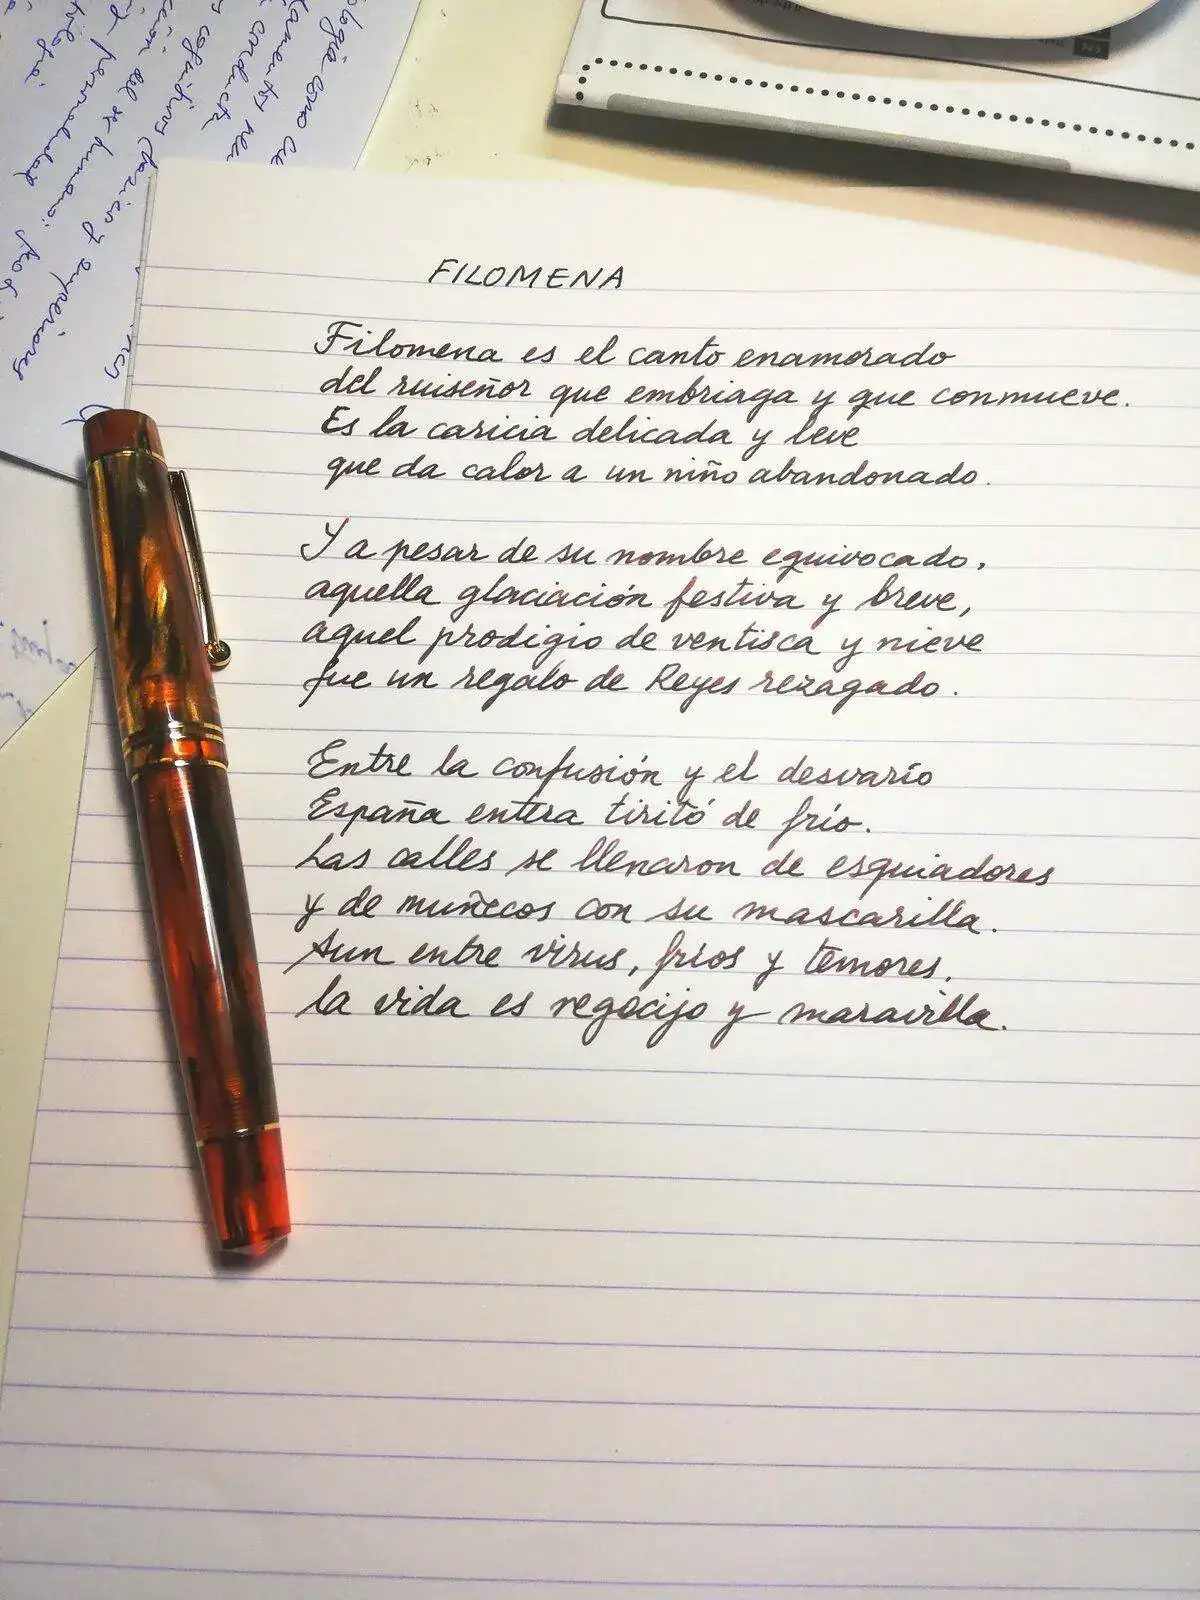 FILOMENA
Filomena es el canto enamorado
del ruiseñor que embriaga y que conmueve.
Es la caricia delicada y leve
que da calor a un niño abandonado.
Y a pesar de su nombre equivocado,
aquella glaciación festiva y breve,
aquel prodigio de ventisca y nieve
fue un regalo de Reyes rezagado.
Entre la confusión y el desvarío
España entera tiritó de frío.
Las calles se llenaron de esquiadores
y de muñecos con su mascarilla.
Aun entre virus, fríos y temores,
la vida es regocijo y maravilla.